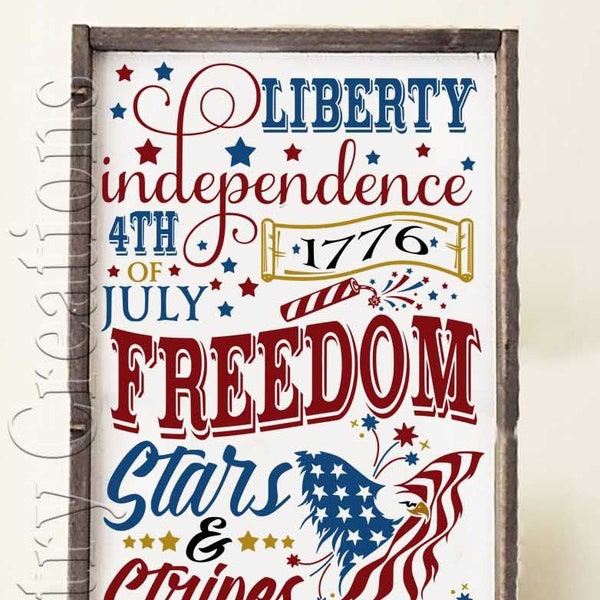 LIBERTY
independence
4TH
OF
JULY
1776
FREEDOM
Stars
&
Stripes
try Creations